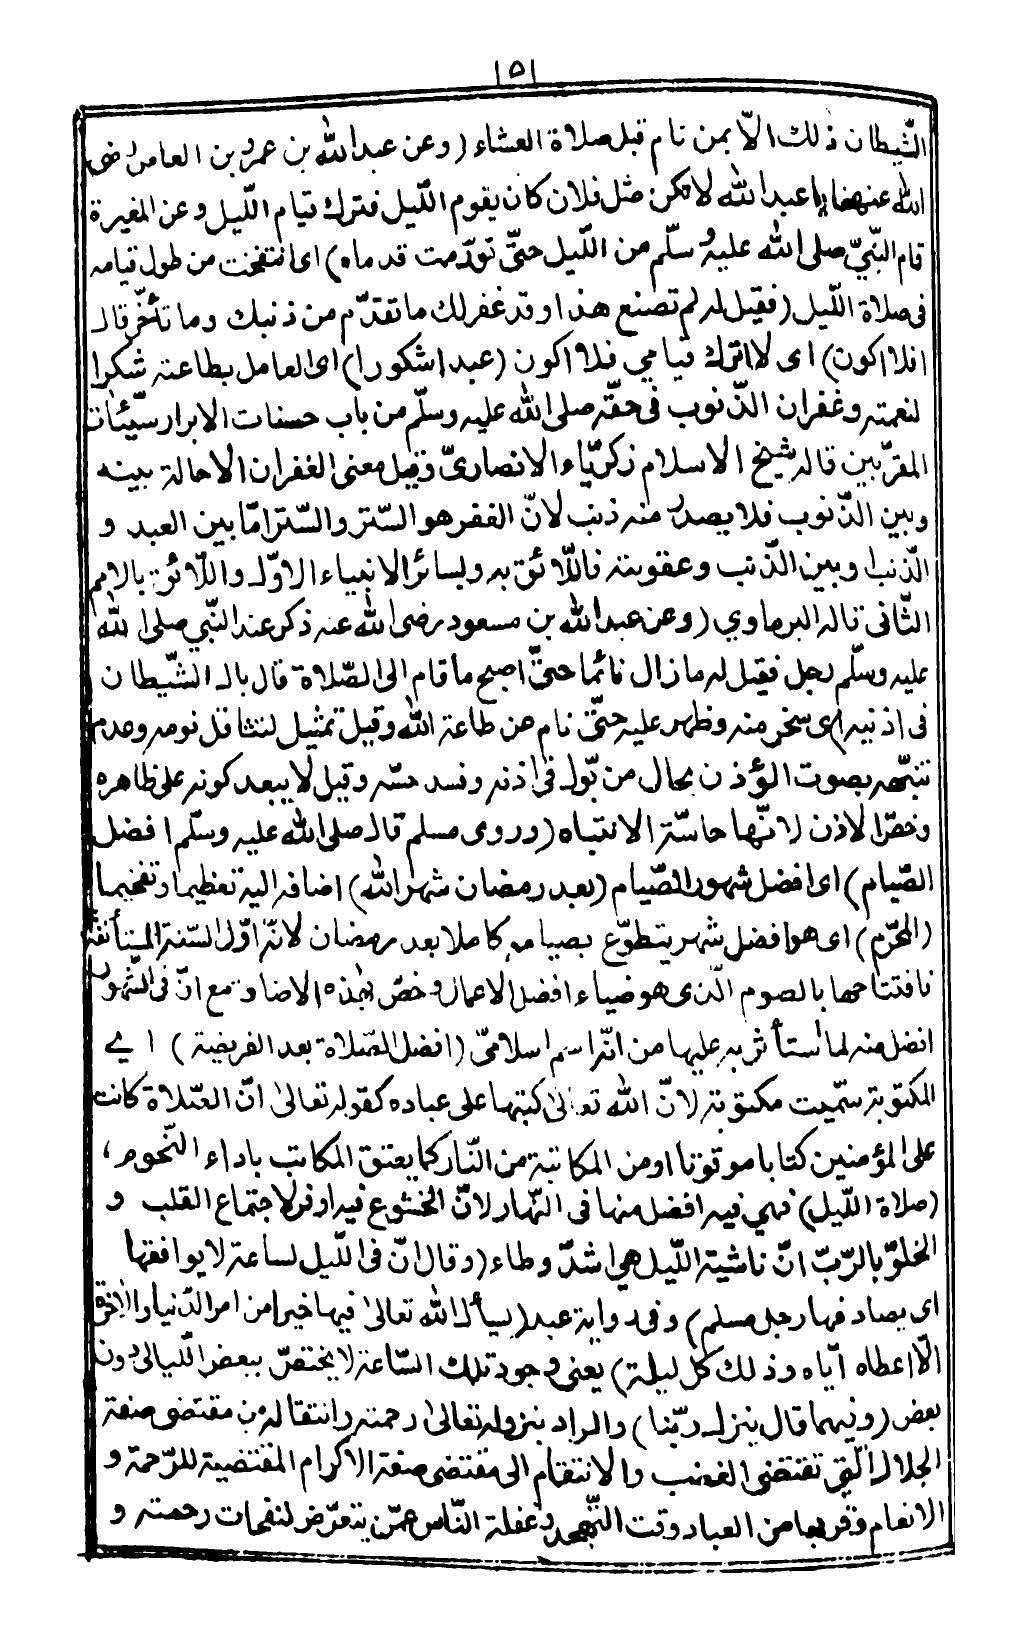 ١٥١
الشّيطان ذلك الّا بمن نام قبل صلاة العشاء (وعن عبدالله بن عمرو بن العاص رضى
الله عنهما يا عبدالله لا تكن مثل فلان كان يقوم اللّيل فترك قيام اللّيل وعن المغيرة
قام النّبيّ صلى الله عليه وسلّم من اللّيل حتّى تورّمت قدماه) اى انتفخت من طول قيامه
فى صلاة اللّيل (فقيل له لم تصنع هذا وقد غفر لك ما تقدّم من ذنبك وما تأخّر قال
افلا اكون) اى لا اترك قيامي فلا اكون (عبدا شكورا) اى العامل بطاعته شكرا
لنعمته وغفران الذّنوب فى حقّه صلى الله عليه وسلّم من باب حسنات الابرار سيّئات
المقرّبين قاله شيخ الاسلام زكريّاء الانصاريّ وقيل معنى الغفران الاحالة بينه
وبين الذّنوب فلا يصدر منه ذنب لانّ الغفر هو السّتر والسّتر امّا بين العبد و
الذّنب او بين الذّنب وعقوبته فاللّائق به وبسائر الانبياء الاوّل واللّائق بالامم
الثّانى قاله البرماوي (وعن عبدالله بن مسعود رضى الله عنه ذكر عند النّبي صلى الله
عليه وسلّم رجل فقيل له ما زال نائما حتّى اصبح ما قام الى الصّلاة قال بال الشّيطان
فى اذنيه) اى سخر منه وظهر عليه حتّى نام عن طاعة الله وقيل تمثيل لتثاقل نومه وعدم
تنبّهه بصوت المؤذن بحال من بوّل فى اذنه وفسد حسّه وقيل لا يبعد كونه على ظاهره
وخصّ الاذن لانّها حاسّة الانتباه (وروى مسلم قال صلى الله عليه وسلّم افضل
الصّيام) اى افضل شهور الصّيام (بعد رمضان شهر الله) اضافه اليه تعظيما وتفخيما
(المحرّم) اى هو افضل شهر يتطوّع بصيامه كاملا بعد رمضان لانّه اوّل السّنة المستأنفة
فافتتاحها بالصوم الّذى هو ضياء افضل الاعمال وخصّ بهذه الاضافة مع انّ فى الشّهور
افضل منه لما استأثر به عليها من انّه اسم اسلاميّ (افضل الصّلاة بعد الفريضة) اي
المكتوبة سمّيت مكتوبة لانّ الله تعالى كتبها على عباده كقوله تعالى انّ الصّلاة كانت
على المؤمنين كتابا موقوتا او من المكاتبة من النّار كما يعتق المكاتب باداء النّجوم،
(صلاة اللّيل) فهي فيه افضل منها فى النّهار لانّ الخشوع فيه اوفر لاجتماع القلب و
الخلوّ بالرّبّ انّ ناشية اللّيل هي اشدّ وطاء (وقال انّ فى اللّيل لساعة لا يوافقها
اى يصادفها رجل مسلم) وفى رواية عبد (يسأل الله تعالى فيها خيرا من امر الدّنيا والآخرة
الّا اعطاه ايّاه وذلك كلّ ليلة) يعنى وجود تلك السّاعة لا يختصّ ببعض اللّيالى دون
بعض (وفيهما قال ينزل ربّنا) والمراد بنزوله تعالى رحمته وانتقاله من مقتضى صفة
الجلال الّتى تقتضى الغضب والانتقام الى مقتضى صفة الاكرام المقتضية للرّحمة و
الانعام وقربها من العباد وقت التّهجد وغفلة النّاس عمّن يتعرّض لنفحات رحمته و